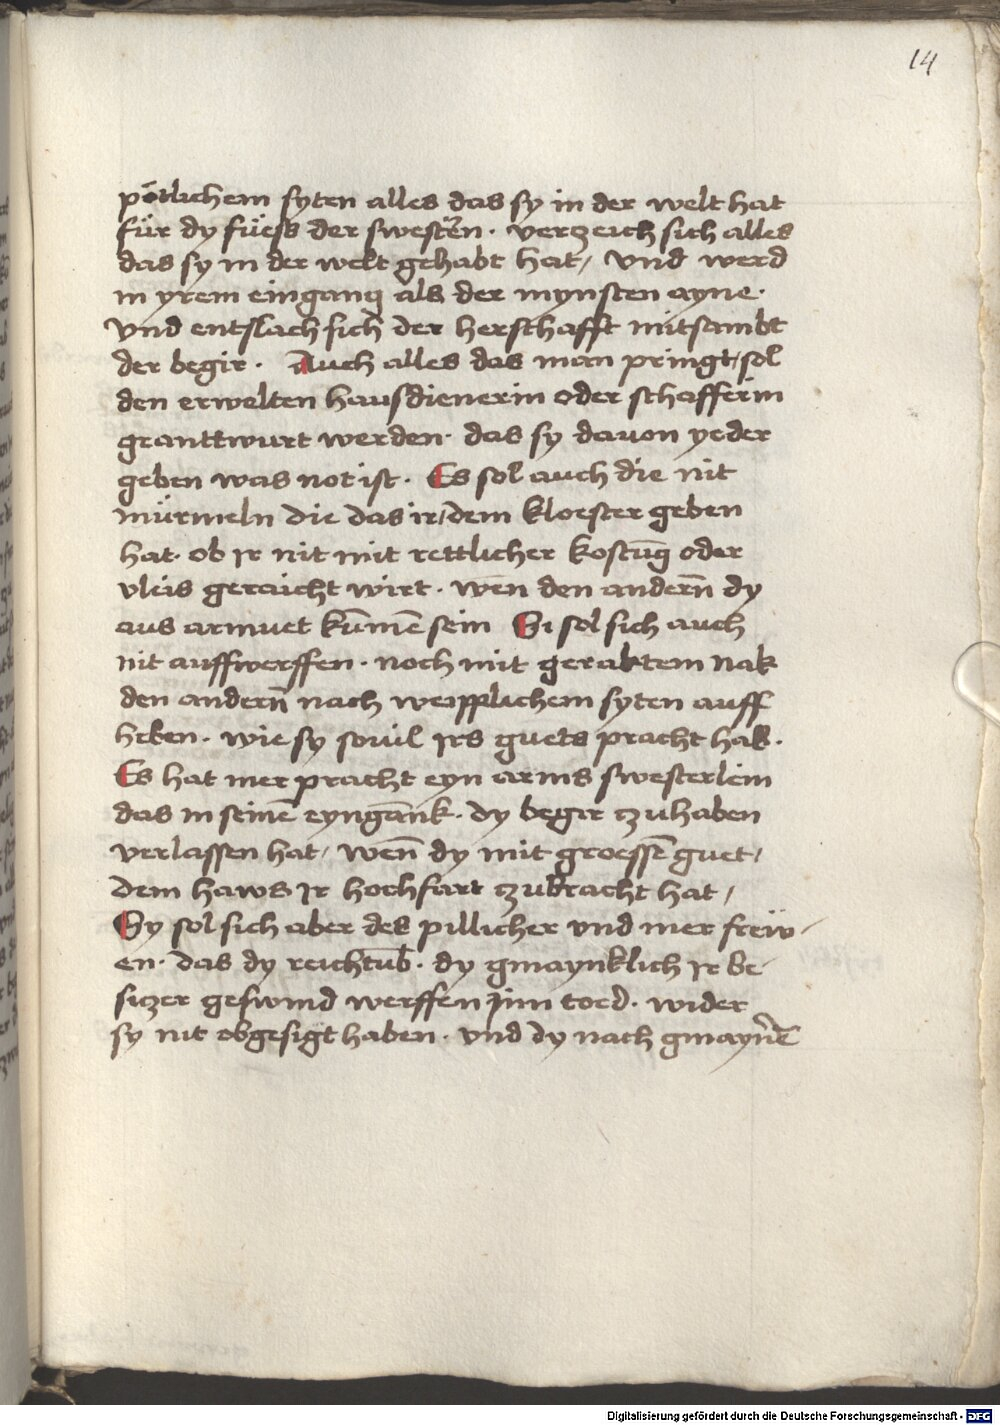 14
pötlichem syten alles das sy in der welt hat
für dy füess der swestren̄. verzeich sich alles
das sy in der welt gehabt hat, vnd werd
in yrem eingang als der mynsten ayne.
vnd entslach sich der herschafft mitsambt
der begir. Auch alles das man pringt, sol
den erwelten hausdienerin oder schafferin
geanttwurt werden. das sy dauon yeder
geben was not ist. Es sol auch die nit
mürmeln die das ir, dem kloester geben
hat. ob ir nit mit rettlicher kostūg oder
vleis geraicht wirt. wen̄ den andern̄ dy
aus armuet kūmē sein Si sol sich auch
nit auffwerffen. noch mit geraktem nak
den andern̄ nach weipplichem syten auff
heben. wie sy souil irs guets pracht hab.
Es hat mer pracht eyn arms swesterlein
das in seinē eyngānk. dy begir tzuhaben
verlassen hat, wen̄ dy mit groessē guet,
dem haws ir hochfart tzubracht hat,
Sy sol sich aber des pillicher vnd mer frew-
en. das dy reichtūb. dy gmaynklich ir be-
siczer geswind werffen jnn toed. wider
sy nit obgesigt haben. vnd dy nach gmaynē
Digitalisierung gefördert durch die Deutsche Forschungsgemeinschaft - DFG